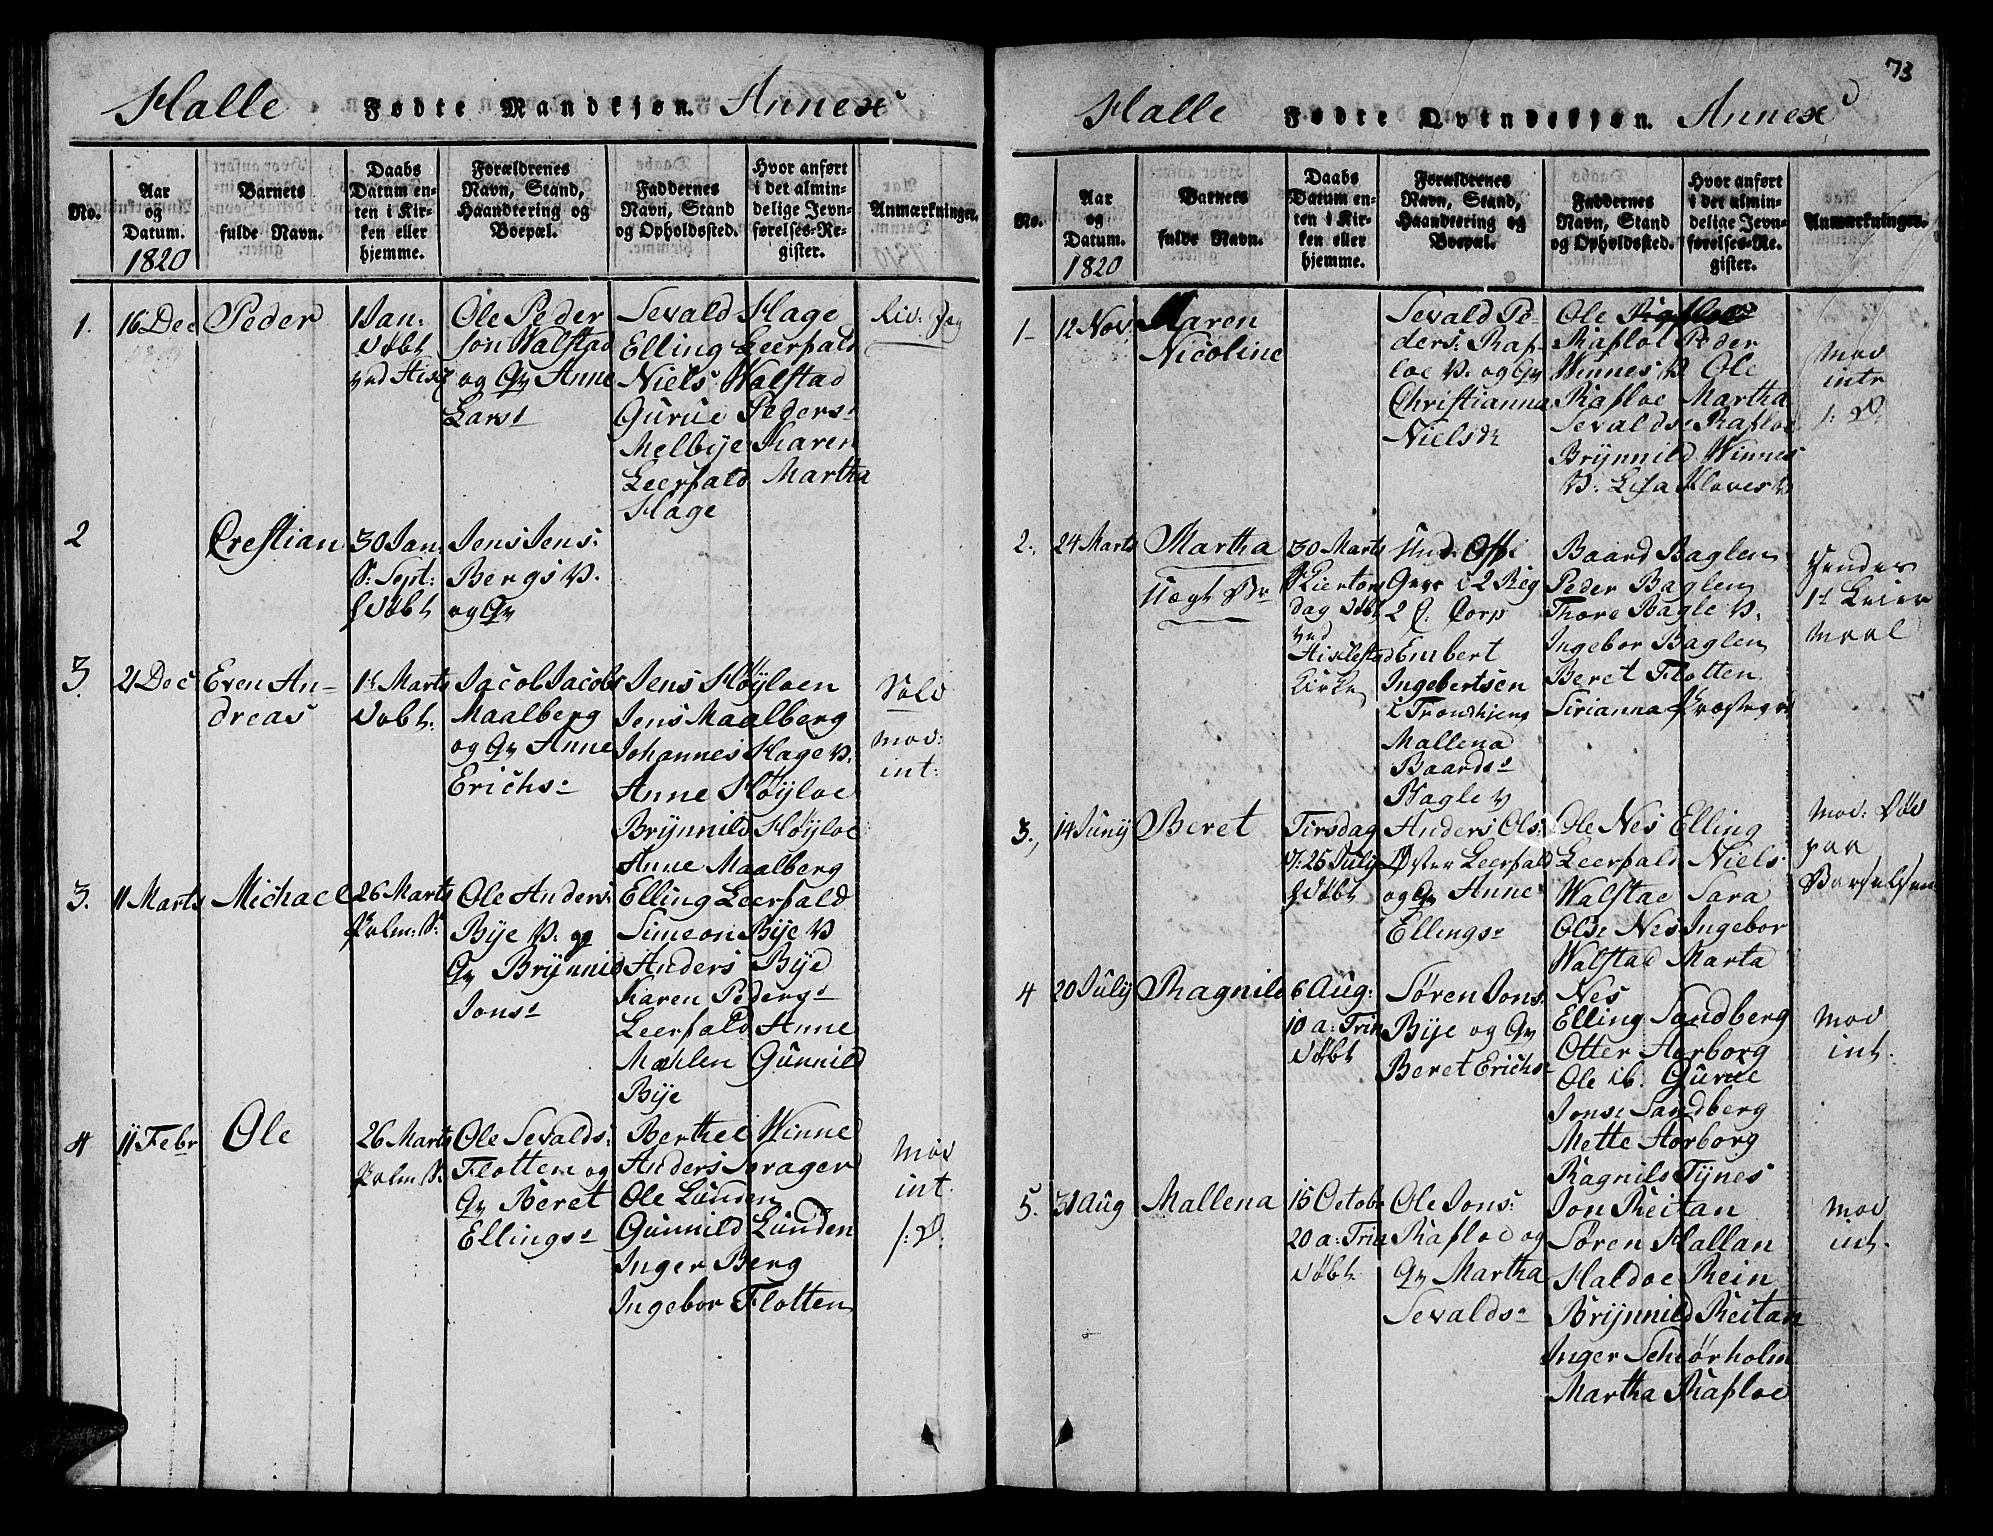 Halle Fødte Mandkjøn. Annex
No.
Aar og Datum. 1820
Barnets fulde Navn.
Daabs Datum enten i Kirken eller hjemme.
Forældrenes Navn, Stand, Haandtering og Boepæl.
Faddernes Navn, Stand og Opholdssted.
Hvor anført i det almindelige Jevnførelses-Register.
Anmærkninger.
1. 16 Dec Peder
1 Jan:
døbt
ved
Ole Peder
son Walstad
og Qv Anne
Lars:
Sevald Hage
Elling Leerfald
Niels Walstad
Gurue Peders:
Melbije Karen
Leerfald Martha
Hage
2
Crestian
30 Jan:
S: Sept:
døbt
Jens Jens:
Bergs V.
og Qv
3. 21 Dec Even An-
dreas
1st Marts
døbt.
Jacob Jacobs
Maalberg
og Qv Anne
Erichs:
Jens Høyloen
Jens Maalberg
Johannes Hage V.
Anne Høyloe
Brynnild Høyloe
Anne Maalberg
mod:
int:
3. 11 Marts Michael
26 Marts
Palm: S:
Ole Anders:
Bije V: og
Qv Brynnild
Jons:
Elling Leerfald
Simeon Bije V
Anders Bije
Karen Peders:
Leerfald Anne
Mahlen Gunnild
Bije
4 11 Febr Ole
26 Marts
Palm: S:
Ole Sevalds:
Flotten og
Qv Beret
Ellings:
Berthel Winne
Anders Iorager
Ole Lunden
Gunnild Lunden
Inger Berg
Ingebor Flotten
mod
int.
73
Halle Fødte Qvindekjøn. Annex
No.
Aar og Datum. 1820
Barnets fulde Navn.
Daabs Datum enten i Kirken eller hjemme.
Forældrenes Navn, Stand, Haandtering og Boepæl.
Faddernes Navn, Stand og Opholdssted.
Hvor anført i det almindelige Jevnførelses-Re-gister.
Anmærkninger.
1- 12 Nov. Karen
Nicoline
Sevald Pe-
ders: Raf-
loe V. og Qv
Christianna
Niels:
Ole
Rafloe Peder
Winnes V Ole
Rafloe Martha
Sevalds: Rafloe
Brynnild Winnes
V: Lisa Kloves V
mod
intr
2. 24 Marts Martha
Uægt
30 Marts
Skiertors
dag døbt
ved
Kirke
Und: Off:
2 C: Corp
Embert
Ingebertsen
i Trondhjem
Mallena
Baards:
Bagle V
Baard Baglen
Peder Baglen
Thore Bagle V.
Ingebor Baglen
Beret Flotten
Sirianna
1st Leier
maal
3. 14 Junij Beret
Tirsdag
25 July
døbt
Anders Ols:
Øster Leerfald
og Qv Anne
Ellings:
Ole Nes Elling
Leerfald Niels
Walstad Sara
Ols: Nes Ingebor
Walstad Marta
Nes
mod: død
paa
Barselsen
4 20 July Ragnild
6 Aug:
10 a: Trin
døbt
Søren Jons:
Bije og Qv
Beret Erichs:
Elling Sandberg
Otter Aarborg
Ole ib. Gurue
Jons: Sandberg
Mette Aarborg
Ragnild Tynes
mod
int.
5. 31 Aug Mallena
15 Octobr
20 a: Trin
døbt
Ole Jons:
Rafloe og
Qv Martha
Sevalds:
Jon Reitan
Søren Hallan
Haldoe Rein
Brynnild Reitan
Inger Schiørholm
Martha Rafloe
mod
int.